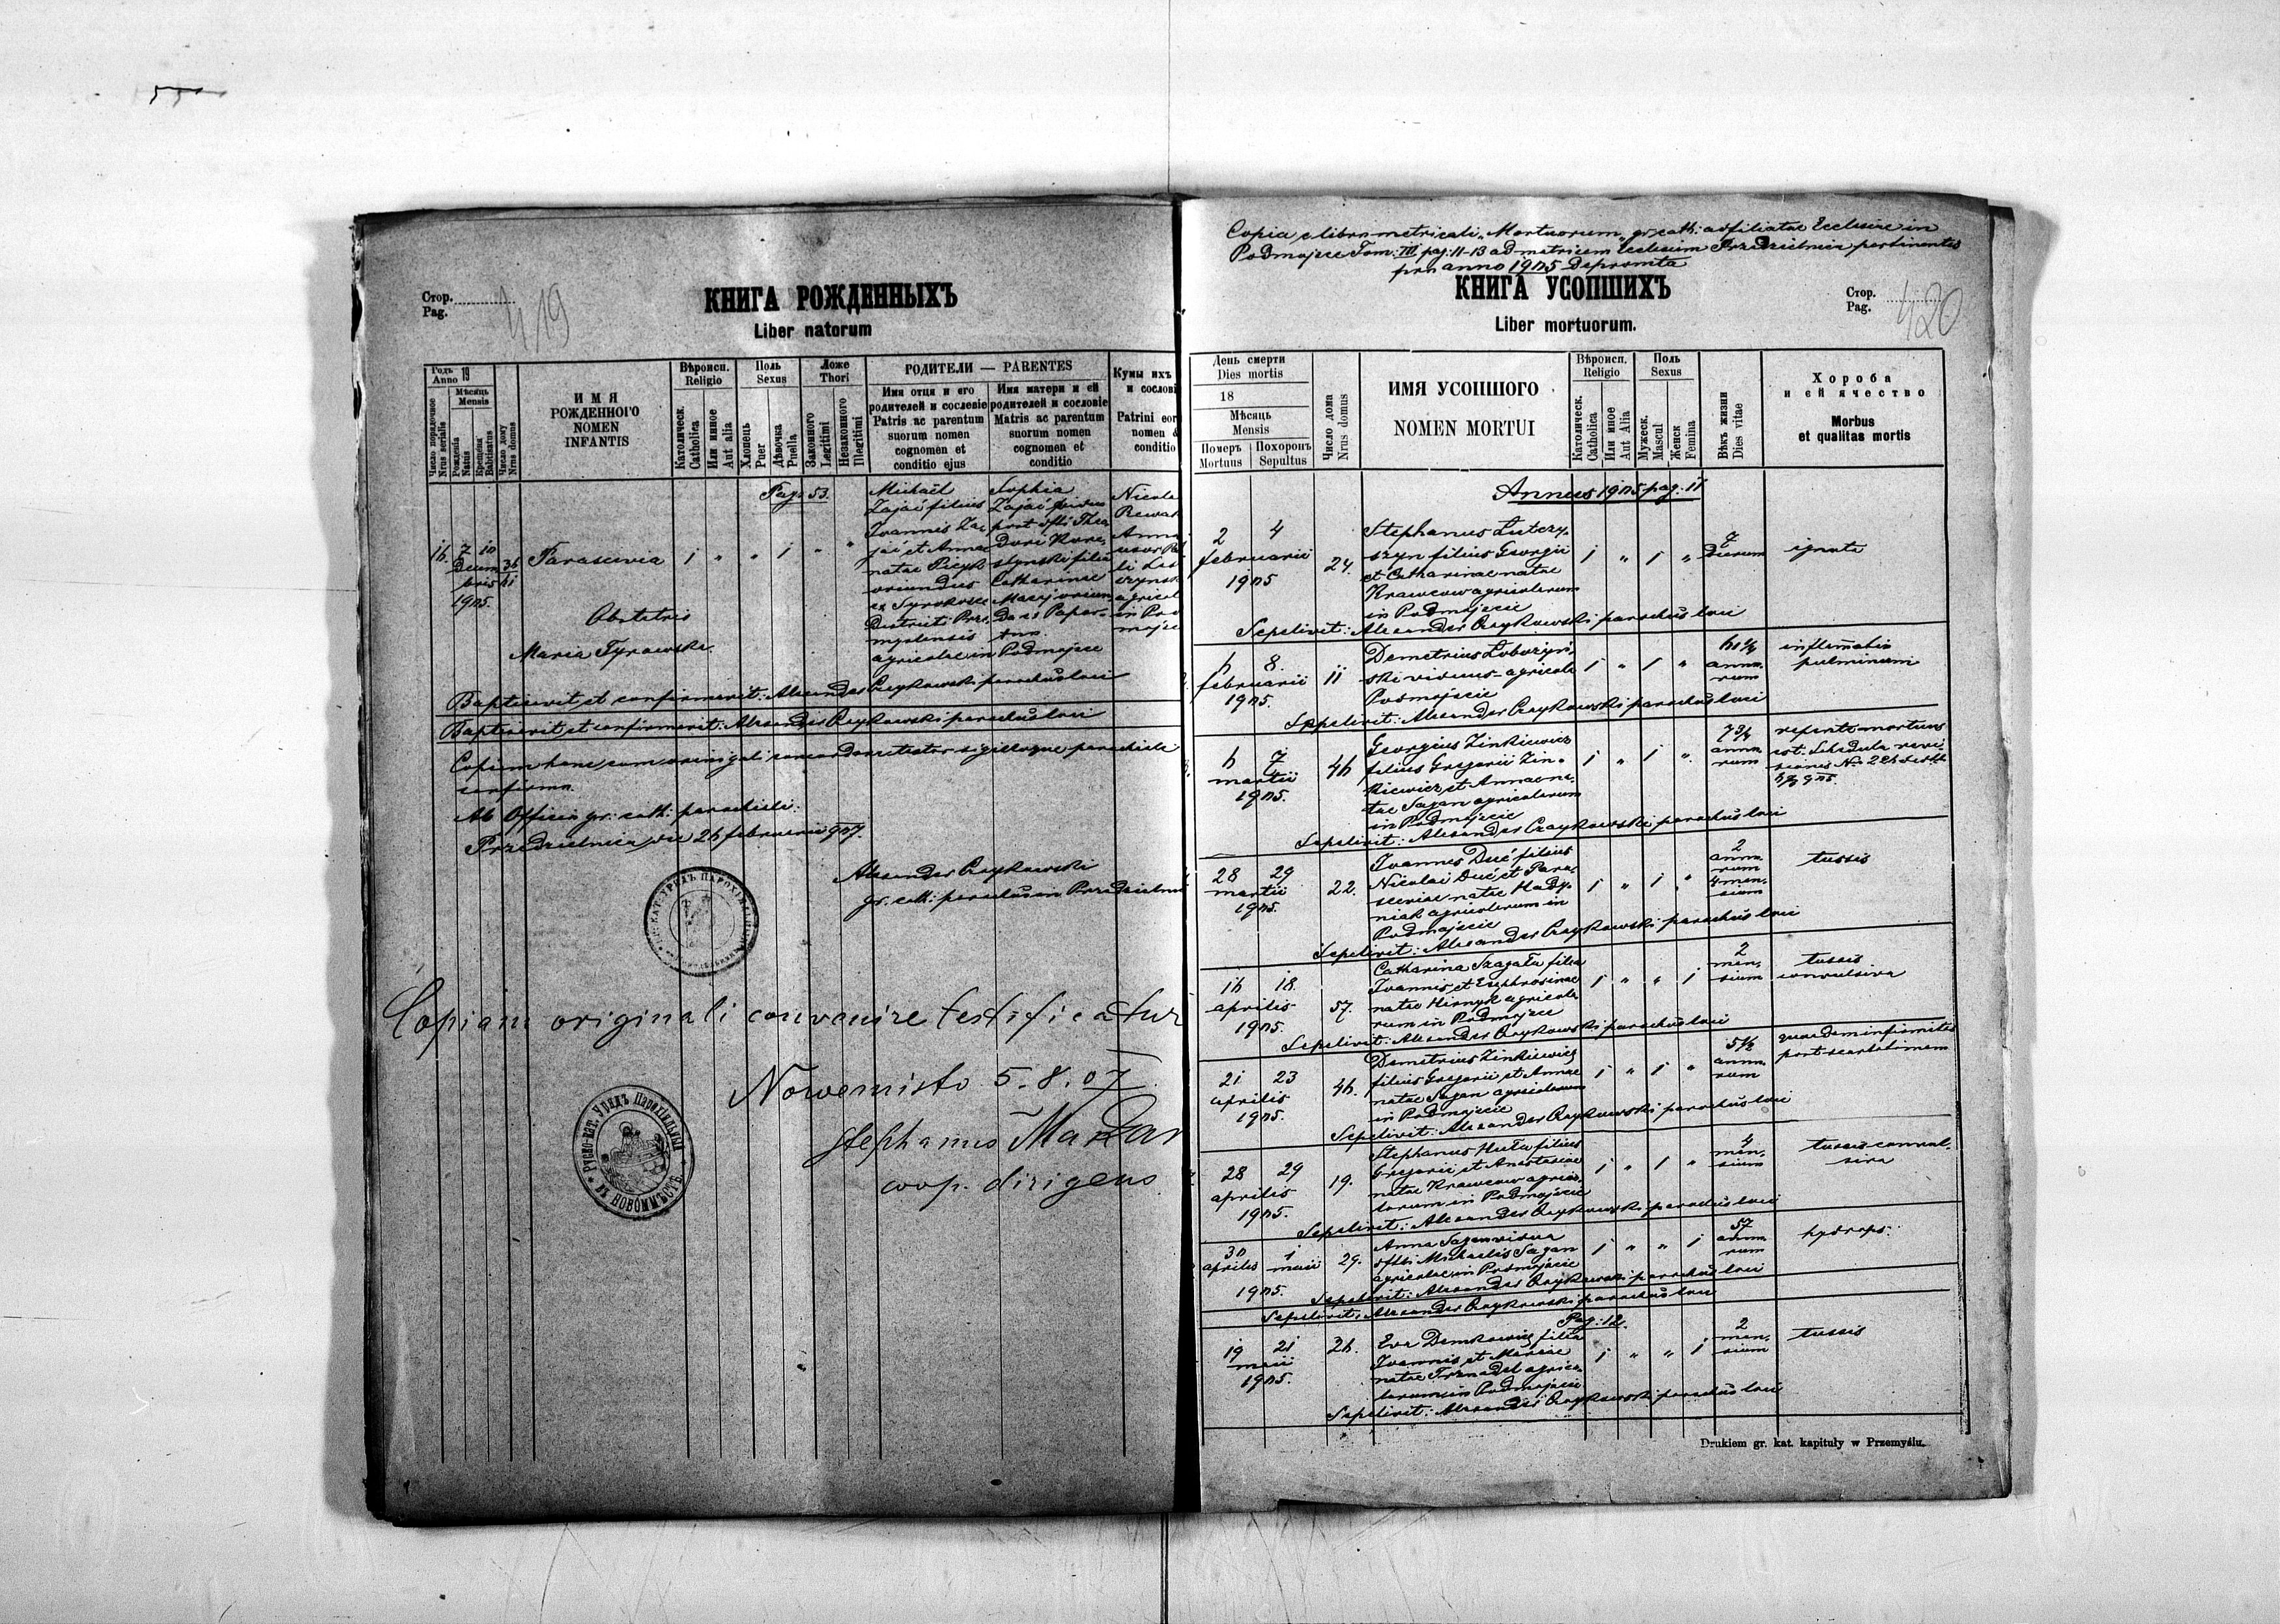 Стор.
Pag.
419
КНИГА РОЖДЕННЫХЪ
Liber natorum
Годъ 19
Anno
Мѣсяць
Mensis
Число порядочное
Nrus serialis
Рожденія
Natus
Крещенія
Babtisatus
Число дому
Nrus domus
ИМЯ
РОЖДЕННОГО
NOMEN
INFANTIS
Вѣроисп.
Religio
Католическ.
Catholica
Или инное
Aut alia
Поль
Sexus
Хлопець
Puer
Дѣвочка
Puella
Ложе
Thori
Законного
Legitimi
Незаконного
Illegitimi
РОДИТЕЛИ — PARENTES
Имя отца и его
родителей и сословіе
Patris ac parentum
suorum nomen
cognomen et
conditio ejus
Имя матери и ей
родителей и сословіе
Matris ac parentum
suorum nomen
cognomen et
conditio
Кумы ихъ
и сослові
Patrini eor
nomen &
conditio
Pag. 53.
7
10
Decem
bris
1905.
Parascevia
1 " " 1 " "
Michaël
Zając filius
Joannis Za,
jac et Annae
natae Picyk
oriundus
ex
Districti Prze,
myslensis
agricolae in Podmojsce
Sophia
Zając vidua
post
Dori
filia
Catharinae
Nicola
Anna
uxor
agricol
in Pod
mojsce
Obstetrix
Maria Tyrawska.
Baptisavit et confirmavit: Alexander Czajkowski parochus loci
Baptisavit et confirmavit: Alexander Czajkowski parochus loci
Copiam hanc cum originali concordare testor sigilloque parochiali
confirmo.
Ab Officio gr: cath: parochiali.
Przedzielnica, die 26 februarii 907.
Alexander Czajkowski
gr. cath: parochus in Przedzielni
Copiam originali convenire testificatur
Nowemisto 5. 8. 07
Stephanus
coop. dirigens
РУСКО-КАТ. Урядъ Парохіяльный
въ НОВОМѢСТѢ
Copia e libro metricali "Mortuorum" gr: cath: adfiliatae Ecclesiae in
Podmojsce Tom: III pag: 11-13 ad matricem Ecclesiam Przedzielnica pertinentis
pro anno 1905 Deprompta
КНИГА УСОПШИХЪ
Liber mortuorum.
Стор.
Pag.
420
День смерти
Dies mortis
18
Мѣсяць
Mensis
Померъ
Mortuus
Похоронъ
Sepultus
Число дома
Nrus domus
ИМЯ УСОПШОГО
NOMEN MORTUI
Вѣроисп.
Religio
Католическ.
Catholica
Или иное
Aut Alia
Поль
Sexus
Мужеск.
Mascul
Женск
Femina
Вѣкъ жизни
Dies vitae
Хороба
и ей ячество
Morbus
et qualitas mortis
Annus 1905 pag. 11
2 4
februarii
1905
24.
Stephanus Lutczy,
szyn filius Georgii
et Catharinae natae
Krawcow agricolarum
in Podmojsce
1 " 1 "
7
dierum
ignota
Sepelivit: Alexander Czajkowski parochus loci
6 8.
februarii
1905.
11
Demetrius Lobozyń,
ski viduus agricola
Podmojsce
1 " 1 "
anno,
rum
inflamatio
pulminum
Sepelivit: Alexander Czajkowski parochus loci
6 7
martii
1905.
46
Georgius Zinkiewicz
filius Gregorii Zin,
kiewicz et Annae na,
tae Sagan agricolarum
in Podmojsce
1 " 1 "
anno
rum
repente mortuus
est. Schedula revi,
sionis
Sepelivit: Alexander Czajkowski parochus loci
28 29
martii
1905.
22.
Joannes Duć filius
Nicolai Duć et Para,
sceviae natae Hady,
niak agricolarum in
Podmojsce
1 " 1 "
2
anno,
rum
4 men,
sium
tussis
Sepelivit: Alexander Czajkowski parochus loci
16 18.
aprilis
1905.
57.
Catharina Szagała filia
Joannis et Euphrosinae
natae Hirnyk agricola
rum in Podmojsce
1 " " 1
2
men,
sium
tussis
convulsiva
Sepelivit: Alexander Czajkowski parochus loci
21 23
aprilis
1905.
46.
Demetrius Zinkiewicz
filius Gregorii et Annae
natae Sagan agricolarum
in Podmojsce
1 " 1 "
5½
anno,
rum
quaedam infirmitas
post scarlatinam
Sepelivit: Alexander Czajkowski parochus loci
28 29
aprilis
1905.
19.
Stephanus Huta filius
Gregorii et Anastasiae
natae Krawcow agrico,
larum in Podmojsce
1 " 1 "
4
men,
sium
tussis convul,
siva
Sepelivit: Alexander Czajkowski parochus loci
30 1
aprilis maii
1905.
29.
Anna Sagan vidua
Michaelis Sagan
agricolae in Podmojsce
1 " " 1
57
anno
rum
hydrops.
Sepelivit: Alexander Czajkowski parochus loci
Sepelivit: Alexander Czajkowski parochus loci
Pag: 12.
19 21
maii
1905.
26.
Eva Demkowicz filia
Joannis et Mariae
natae Trznadel agrico,
larum in Podmojsce
1 " " 1
2
men,
sium
tussis
Sepelivit: Alexander Czajkowski parochus loci
Drukiem gr. kat. kapituły w Przemyślu.